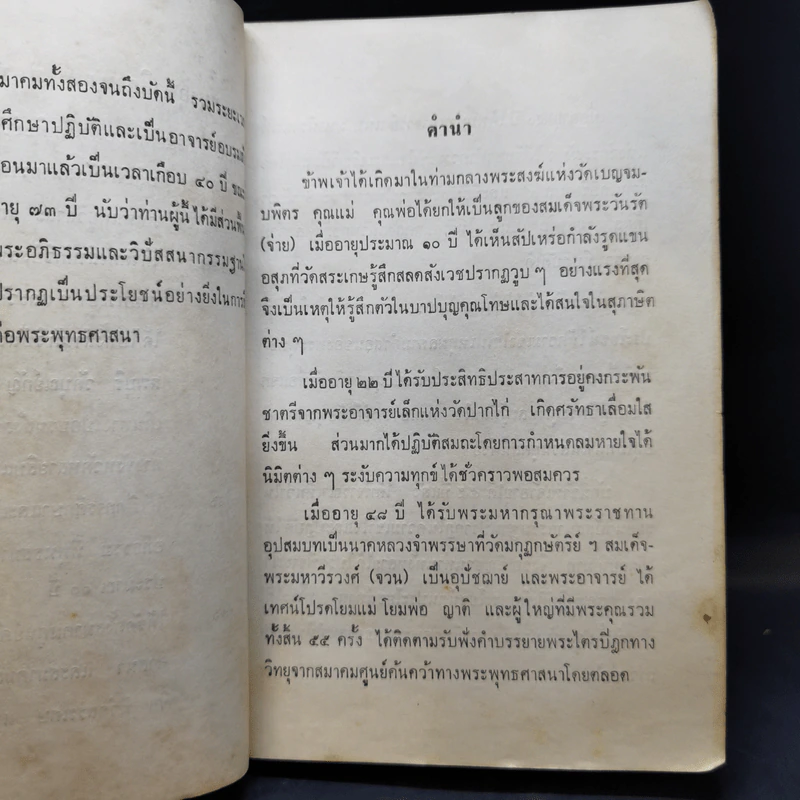 มาคมทั้งสองจนถึงบัดนี้ รวมระยะเว
ศึกษาปฏิบัติและเป็นอาจารย์อบรม
อนมาแล้วเป็นเวลาเกือบ ๔๐ ปี ขณะ
อายุ ๗๓ ปี นับว่าท่านผู้นี้ได้มีส่วน
พระอภิธรรมและวิปัสสนากรรมฐาน
ปรากฏเป็นประโยชน์อย่างยิ่งในการ
ต่อพระพุทธศาสนา
คำนำ
ข้าพเจ้าได้เกิดมาในท่ามกลางพระสงฆ์แห่งวัดเบญจม-
บพิตร คุณแม่ คุณพ่อได้ยกให้เป็นลูกของสมเด็จพระวันรัต
(จ่าย) เมื่ออายุประมาณ ๑๐ ปี ได้เห็นสัปเหร่อกำลังรูดแขน
อสุภที่วัดสระเกษรู้สึกสลดสังเวชปรากฏวูบ ๆ อย่างแรงที่สุด
จึงเป็นเหตุให้รู้สึกตัวในบาปบุญคุณโทษและได้สนใจในสุภาษิต
ต่าง ๆ
เมื่ออายุ ๒๒ ปีได้รับประสิทธิประสาทการอยู่คงกระพัน
ชาตรีจากพระอาจารย์เล็กแห่งวัดปากไก่ เกิดศรัทธาเลื่อมใส
ยิ่งขึ้น ส่วนมากได้ปฏิบัติสมถะโดยการกำหนดลมหายใจได้
นิมิตต่าง ๆ ระงับความทุกข์ได้ชั่วคราวพอสมควร
เมื่ออายุ ๔๘ ปี ได้รับพระมหากรุณาพระราชทาน
อุปสมบทเป็นนาคหลวงจำพรรษาที่วัดมกุฏกษัตริย์ ฯ สมเด็จ-
พระมหาวีรวงศ์ (จวน) เป็นอุปัชฌาย์ และพระอาจารย์ ได้
เทศน์โปรดโยมแม่ โยมพ่อ ญาติ และผู้ใหญ่ที่มีพระคุณรวม
ทั้งสิ้น ๕๕ ครั้ง ได้ติดตามรับฟังคำบรรยายพระไตรปิฎกทาง
วิทยุจากสมาคมศูนย์ค้นคว้าทางพระพุทธศาสนาโดยตลอด